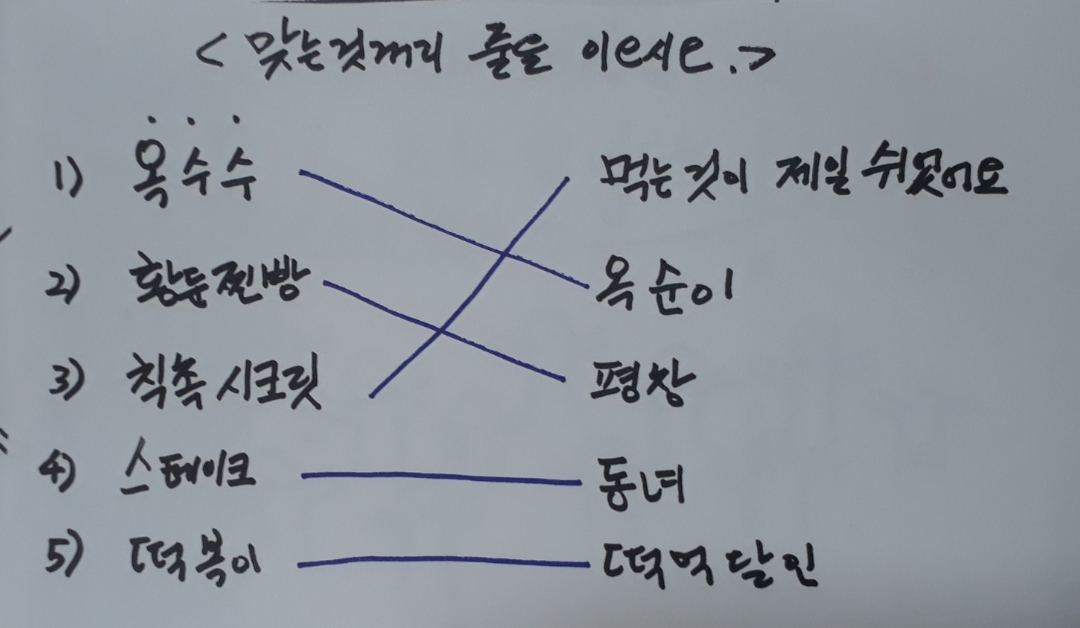 <맞는것끼리 줄을 이으세요.>
1) 옥수수 먹는것이 제일 쉬웠어요
2) 황둔찐빵 옥순이
3) 칙촉 시크릿 평창
4) 스테이크 동녀
5) 떡볶이 떡먹 달인